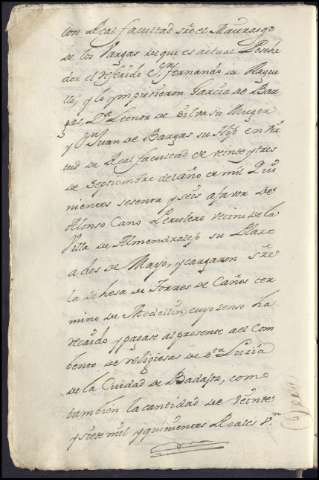 con Real facultad sre el Mayorasgo
de los Vargas de que es actual Posehe
dor el referido Sr. Fernando de
y lo impusieron Garcia de Bar
gas, Da. Leonor de su Muger
y Juan de Bargas su Hijo en vir
tud de Real facultad de veinte y tres
de Septiembre del año de mil Qui
nientos sesenta y seis a favor de
Alonso Cano vecino de la
Villa de Almendralejo su
a dos de Mayo, y cargaron sre
la dehesa de Torres de Caños ter
mino de Medellin, cuyo censo ha
recaido y paga se al presente a el Com
bento de religiosas de Sta. Lucia
de la Ciudad de Badajoz, como
tambien la cantidad de veinte
y siete mil y quinientos Reales